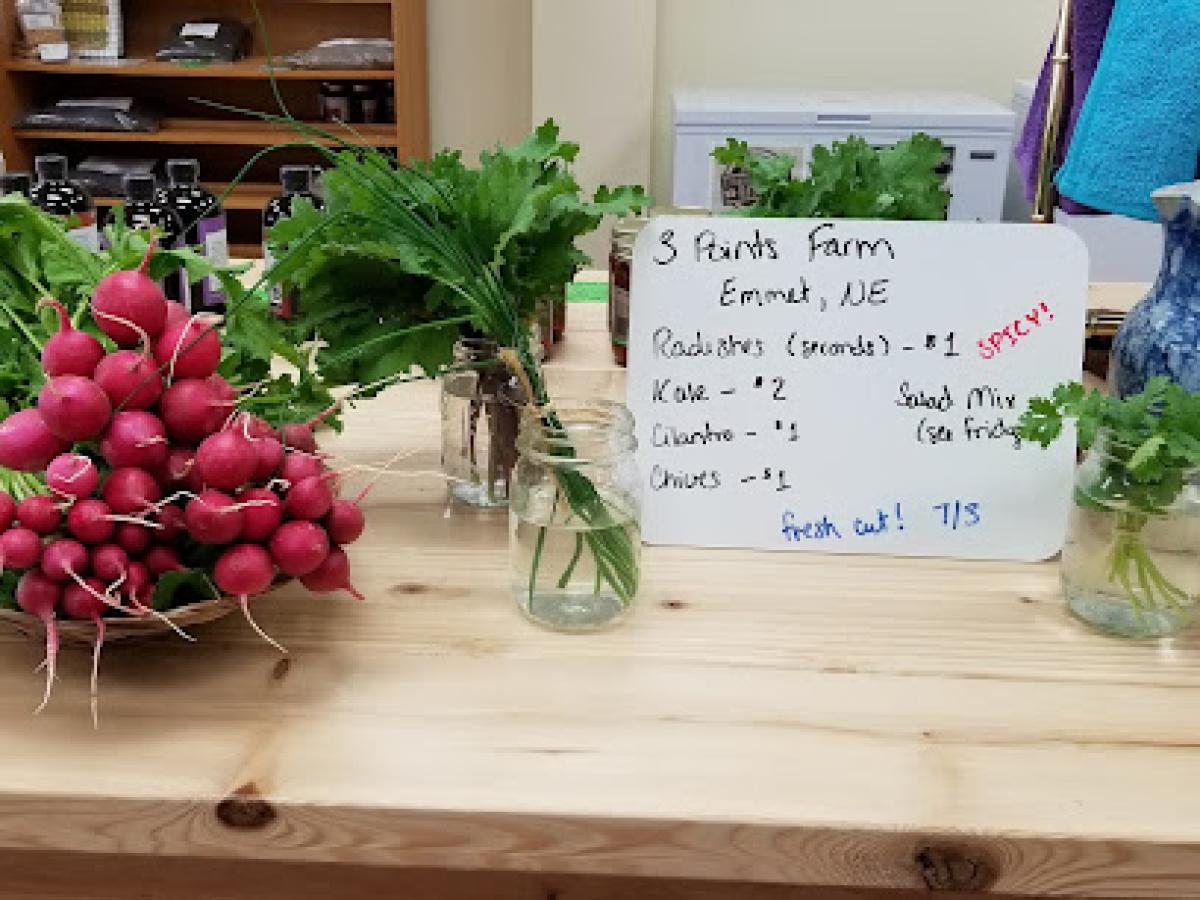 3 Points Farm
Emmet, NE
Radishes (seconds) - $1 SPICY!
Kale - $2
Salad Mix
Cilantro - $1
(see fridge
Chives - $1
fresh cut! 7/3